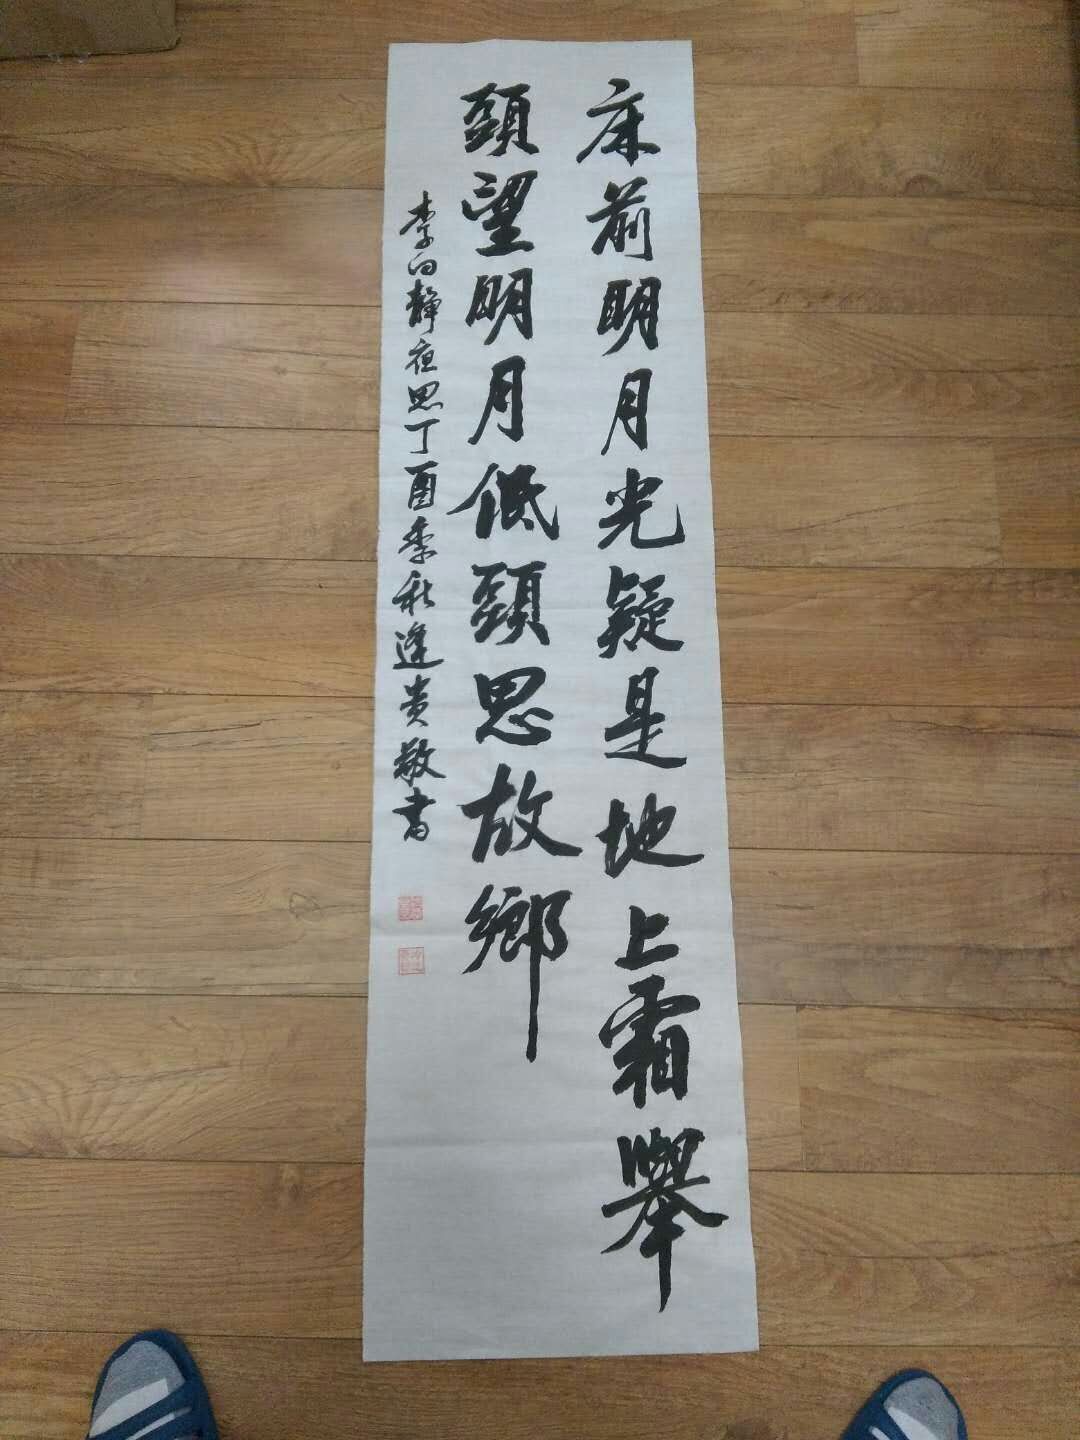 床前明月光疑是地上霜舉
頭望明月低頭思故鄉
李白靜夜思丁酉季秋逢贵敬書